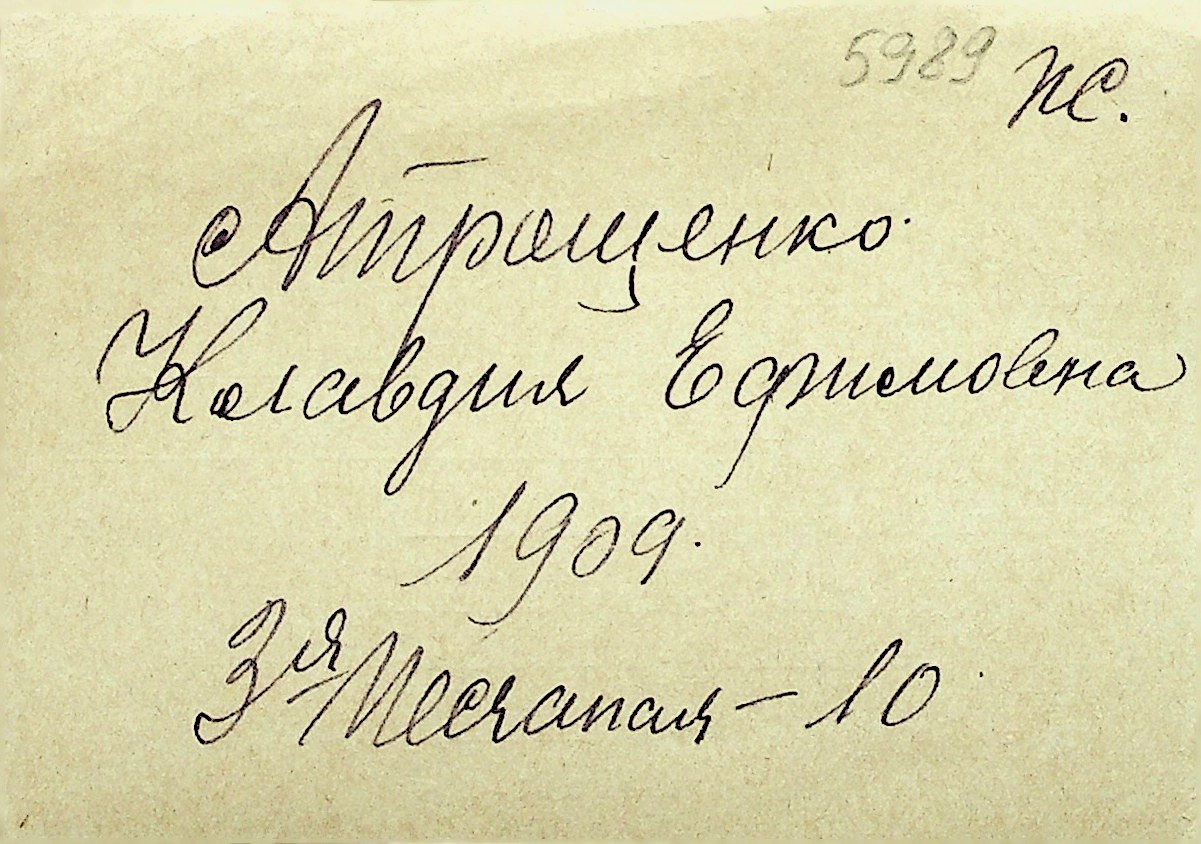 5989 ПС.
Атрощенко
Клавдия Ефимовна
1909.
3я Песчаная - 10